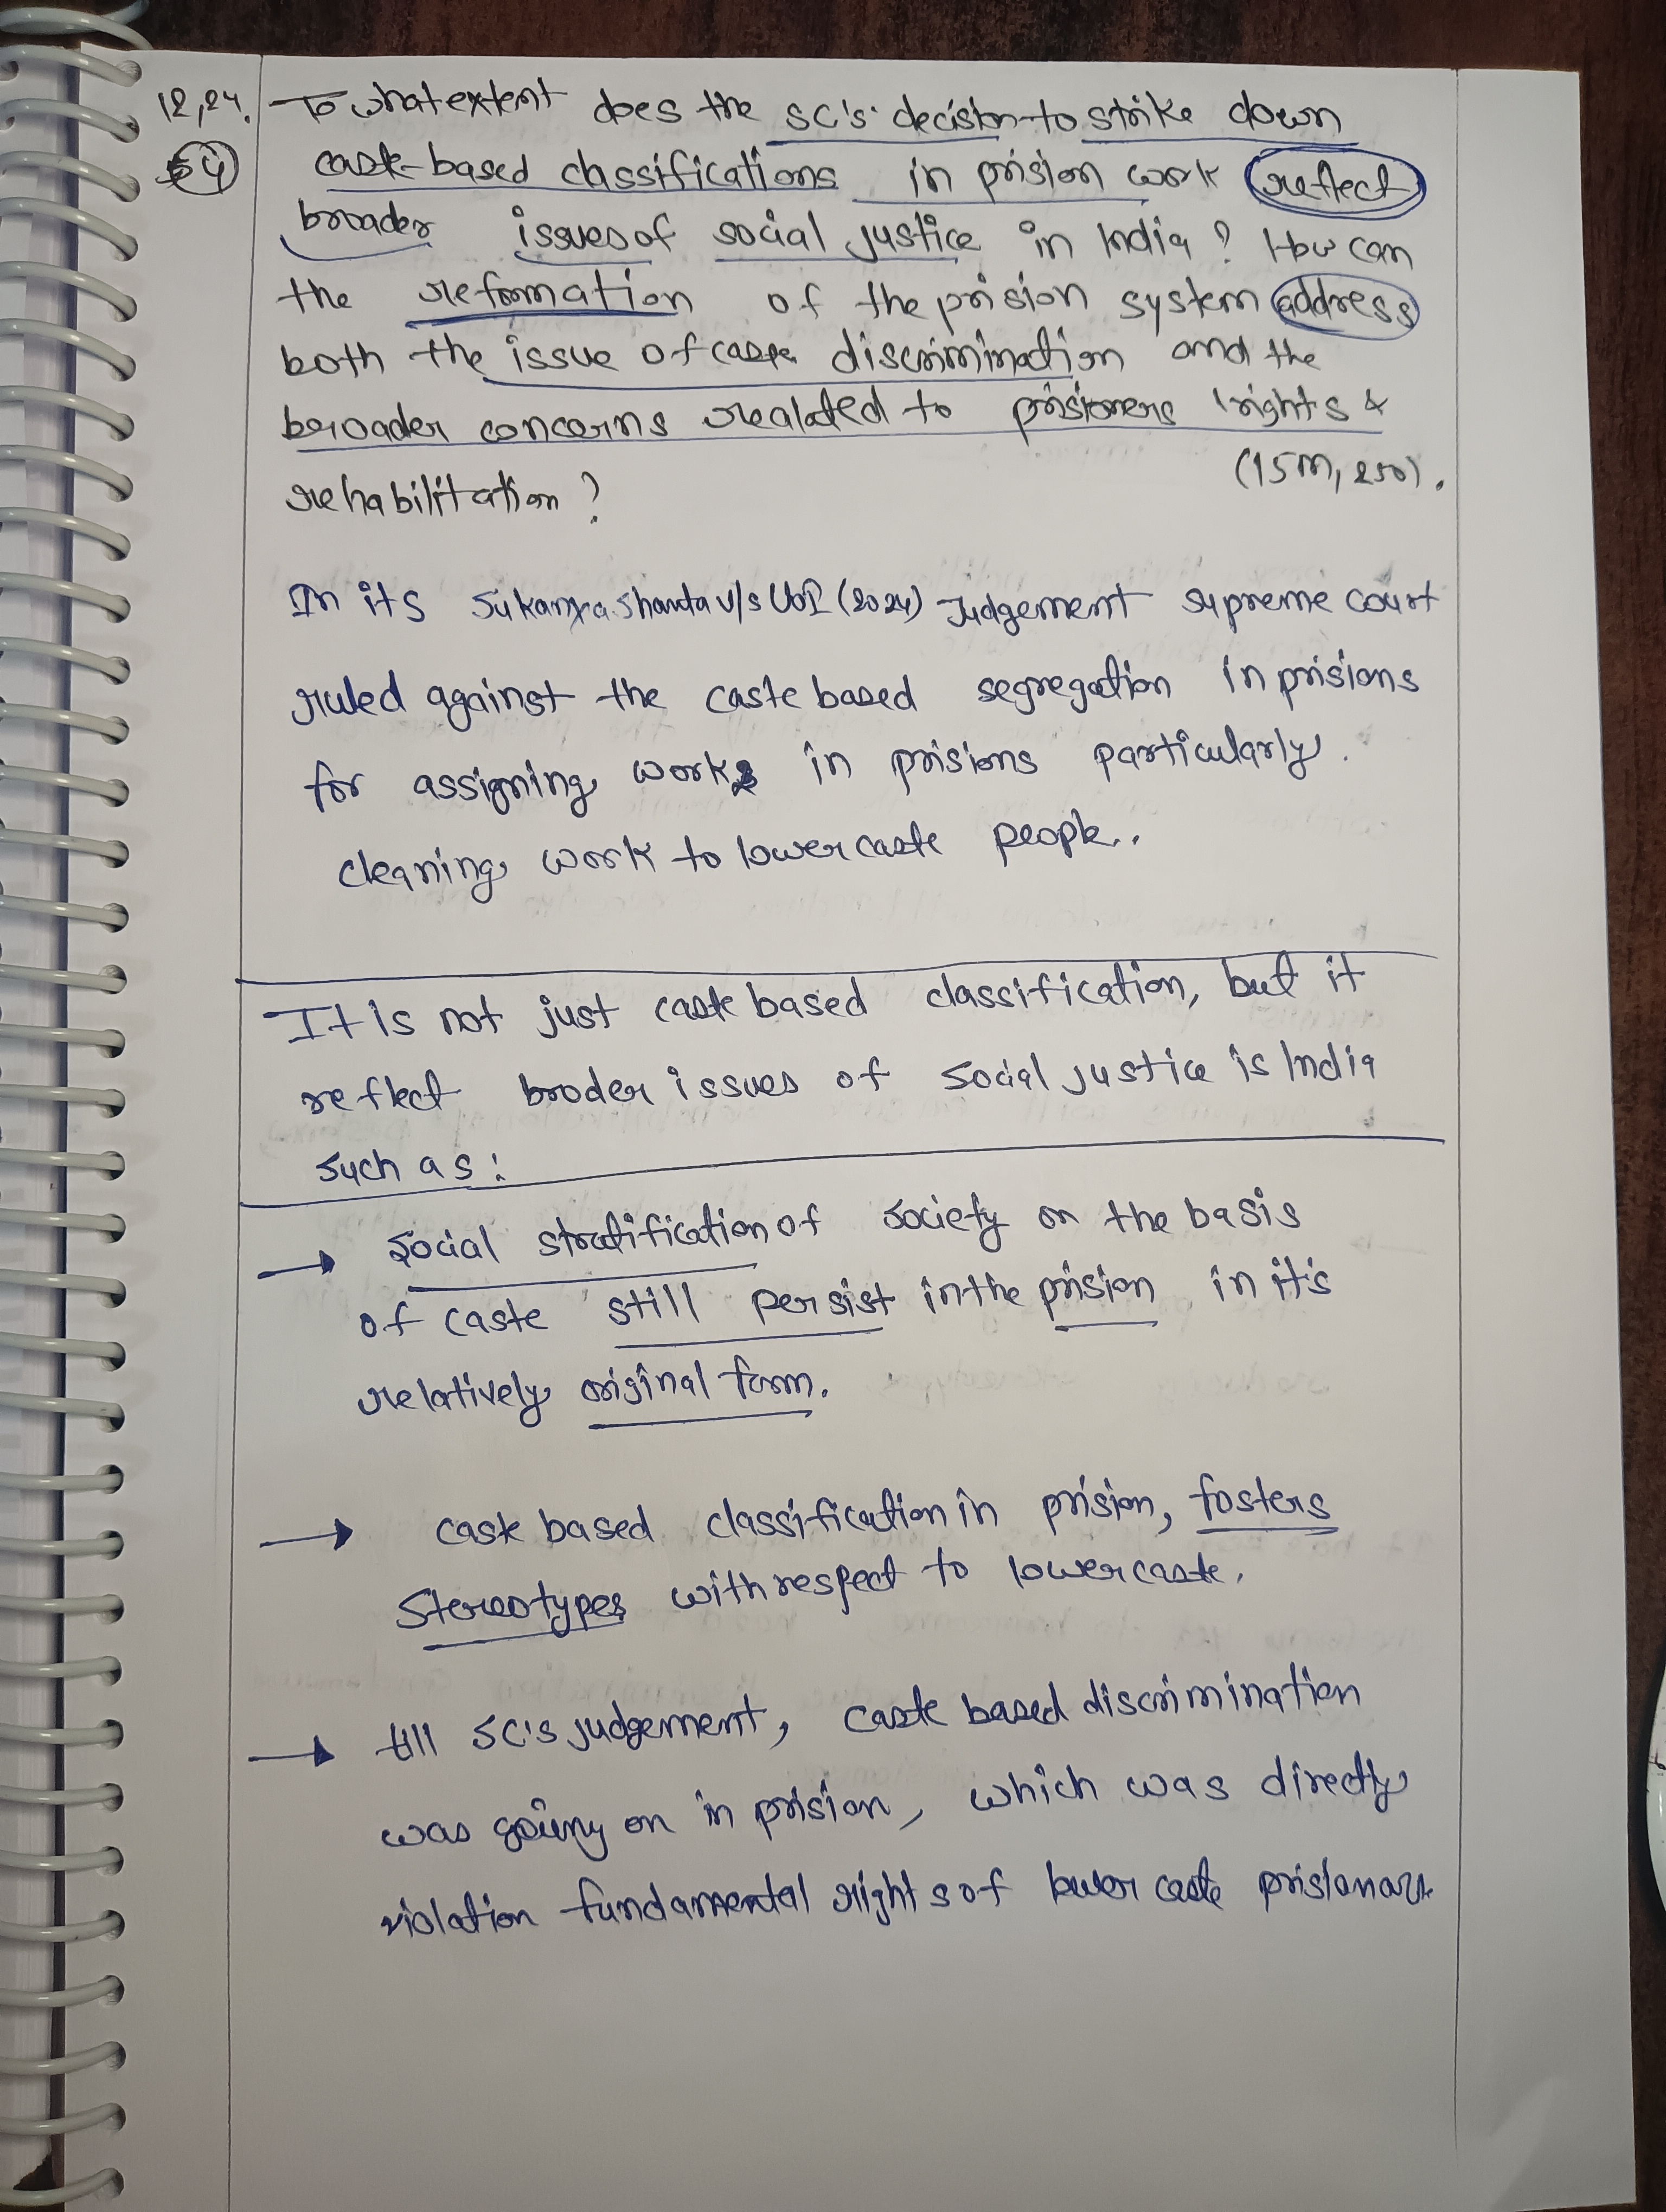 12,24. To what extent does the SC's decision to strike down
(4) caste-based classifications in prision work reflect
broader issues of social justice in India? How can
the reformation of the prision system address
both the issue of caste discrimination and the
broader concerns realated to prisioners rights &
rehabilitation? (15M, 250).
In its Sukanya Shanta v/s UoI (2024) Judgement supreme court
ruled against the caste based segregation in prisions
for assigning works in prisions particularly.
cleaning work to lower caste people..
It is not just caste based classification, but it
reflect broder issues of social justice is India
such as:
→ Social stratification of society on the basis
of caste still persist in the prision in it's
relatively original form.
→ caste based classification in prision, fosters
stereotypes with respect to lower caste.
→ till SC's judgement, caste based discrimination
was going on in prision, which was directly
violation fundamental rights of lower caste